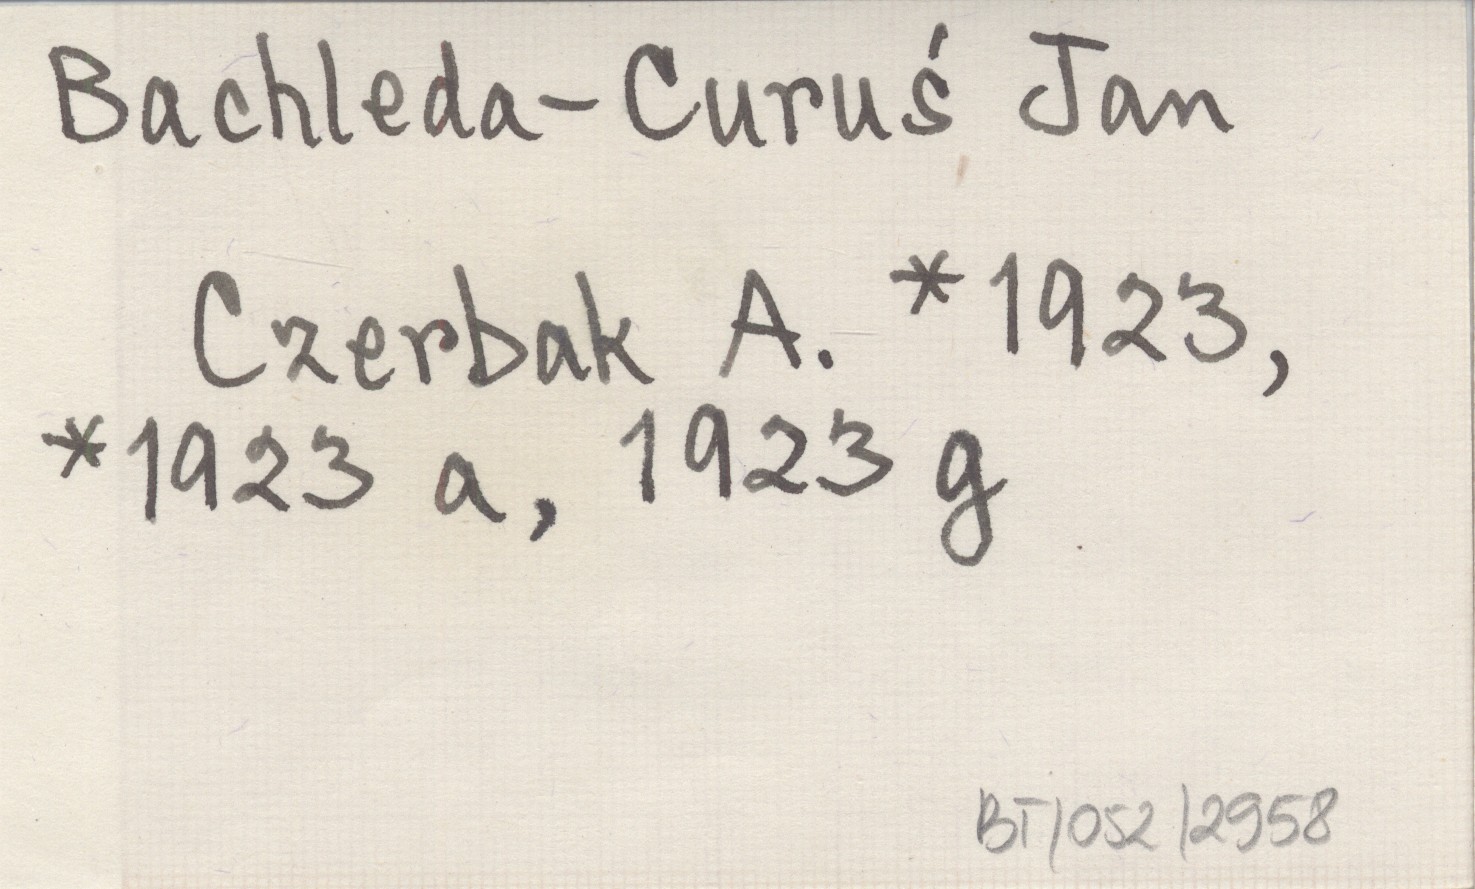 Bachleda-Curuś Jan
Czerbak A. *1923,
*1923 a, 1923 g
BT/052/2958